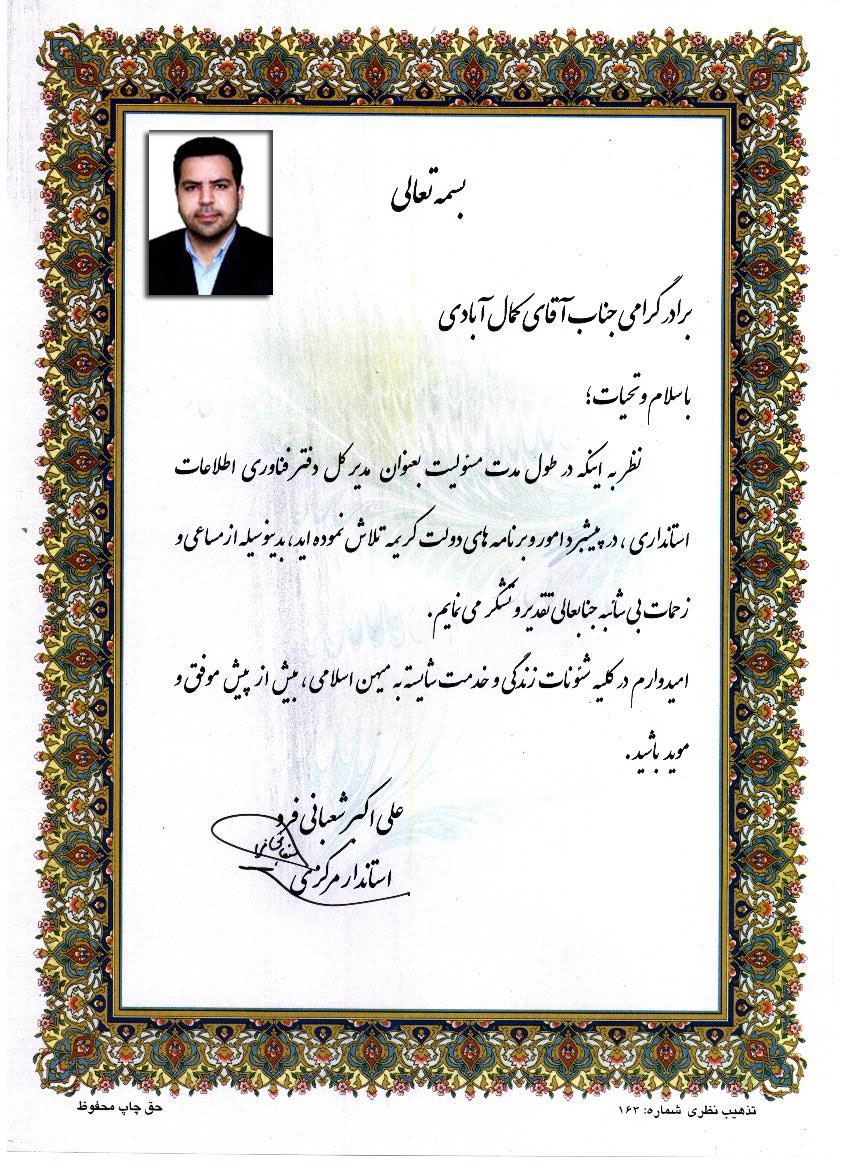 بسمه تعالی
برادر گرامی جناب آقای کمال آبادی
با سلام و تحیات؛
نظر به اینکه در طول مدت مسئولیت بعنوان مدیر کل دفتر فناوری اطلاعات
استانداری، در پیشبرد امور و برنامه های دولت کریمه تلاش نموده اید، بدینوسیله از مساعی و
زحمات بی شائبه جنابعالی تقدیر و تشکر می نمایم.
امیدوارم در کلیه شئونات زندگی و خدمت شایسته به میهن اسلامی، بیش از پیش موفق و
موید باشید.
علی اکبر شعبانی فرد
استاندار مرکزی
تذهیب نظری شماره: ۱۶۳
حق چاپ محفوظ